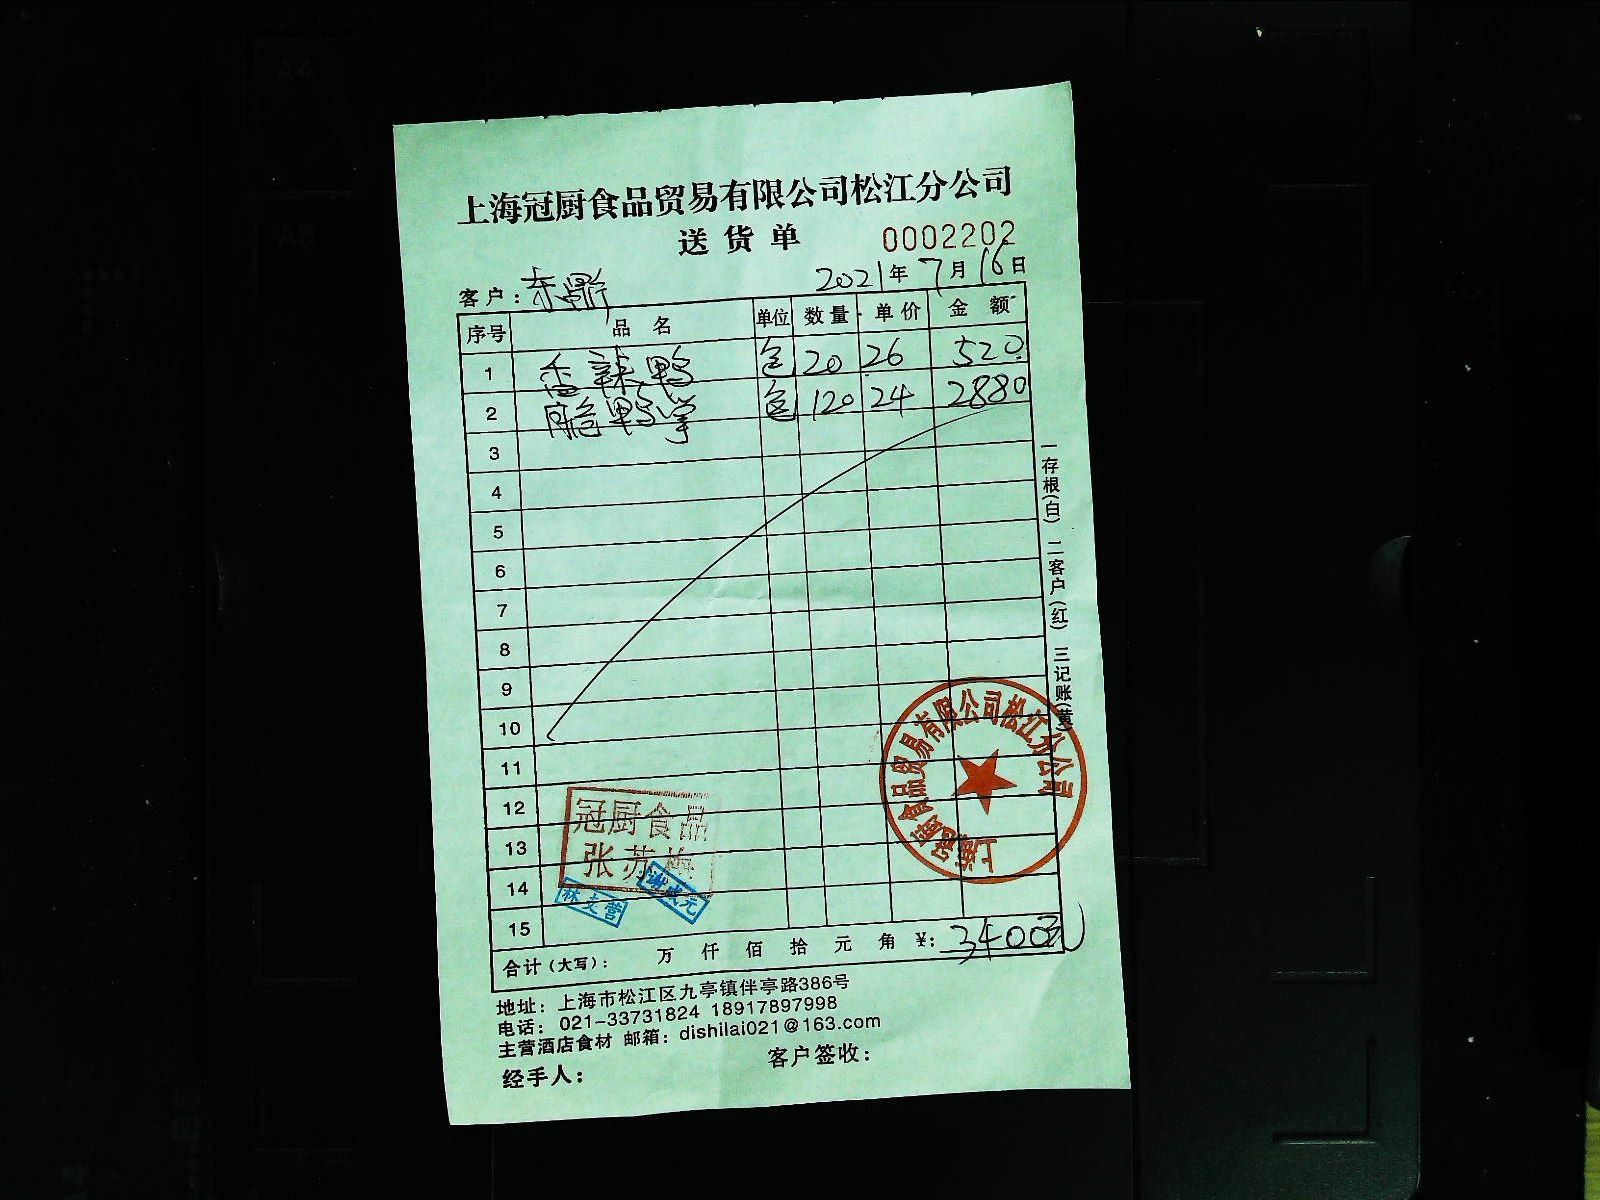 上海冠厨食品贸易有限公司松江分公司
送货单 0002202
客户: 2021年7月16日
序号 品名 单位 数量 单价 金额
1 香辣鸭 包 20 26 520
2 脆鸭掌 包 120 24 2880
3
4
5
6
7
8
9
10
11
12
13
14
15
合计(大写): 万 仟 佰 拾 元 角 ¥: 3400元
一存根(白) 二客户(红) 三记账(黄)
上海冠厨食品贸易有限公司松江分公司
冠厨食品
张苏梅
谢成元
林文营
地址: 上海市松江区九亭镇伴亭路386号
电话: 021-33731824 18917897998
主营酒店食材 邮箱: dishilai021@163.com
经手人: 客户签收:
A4
A5